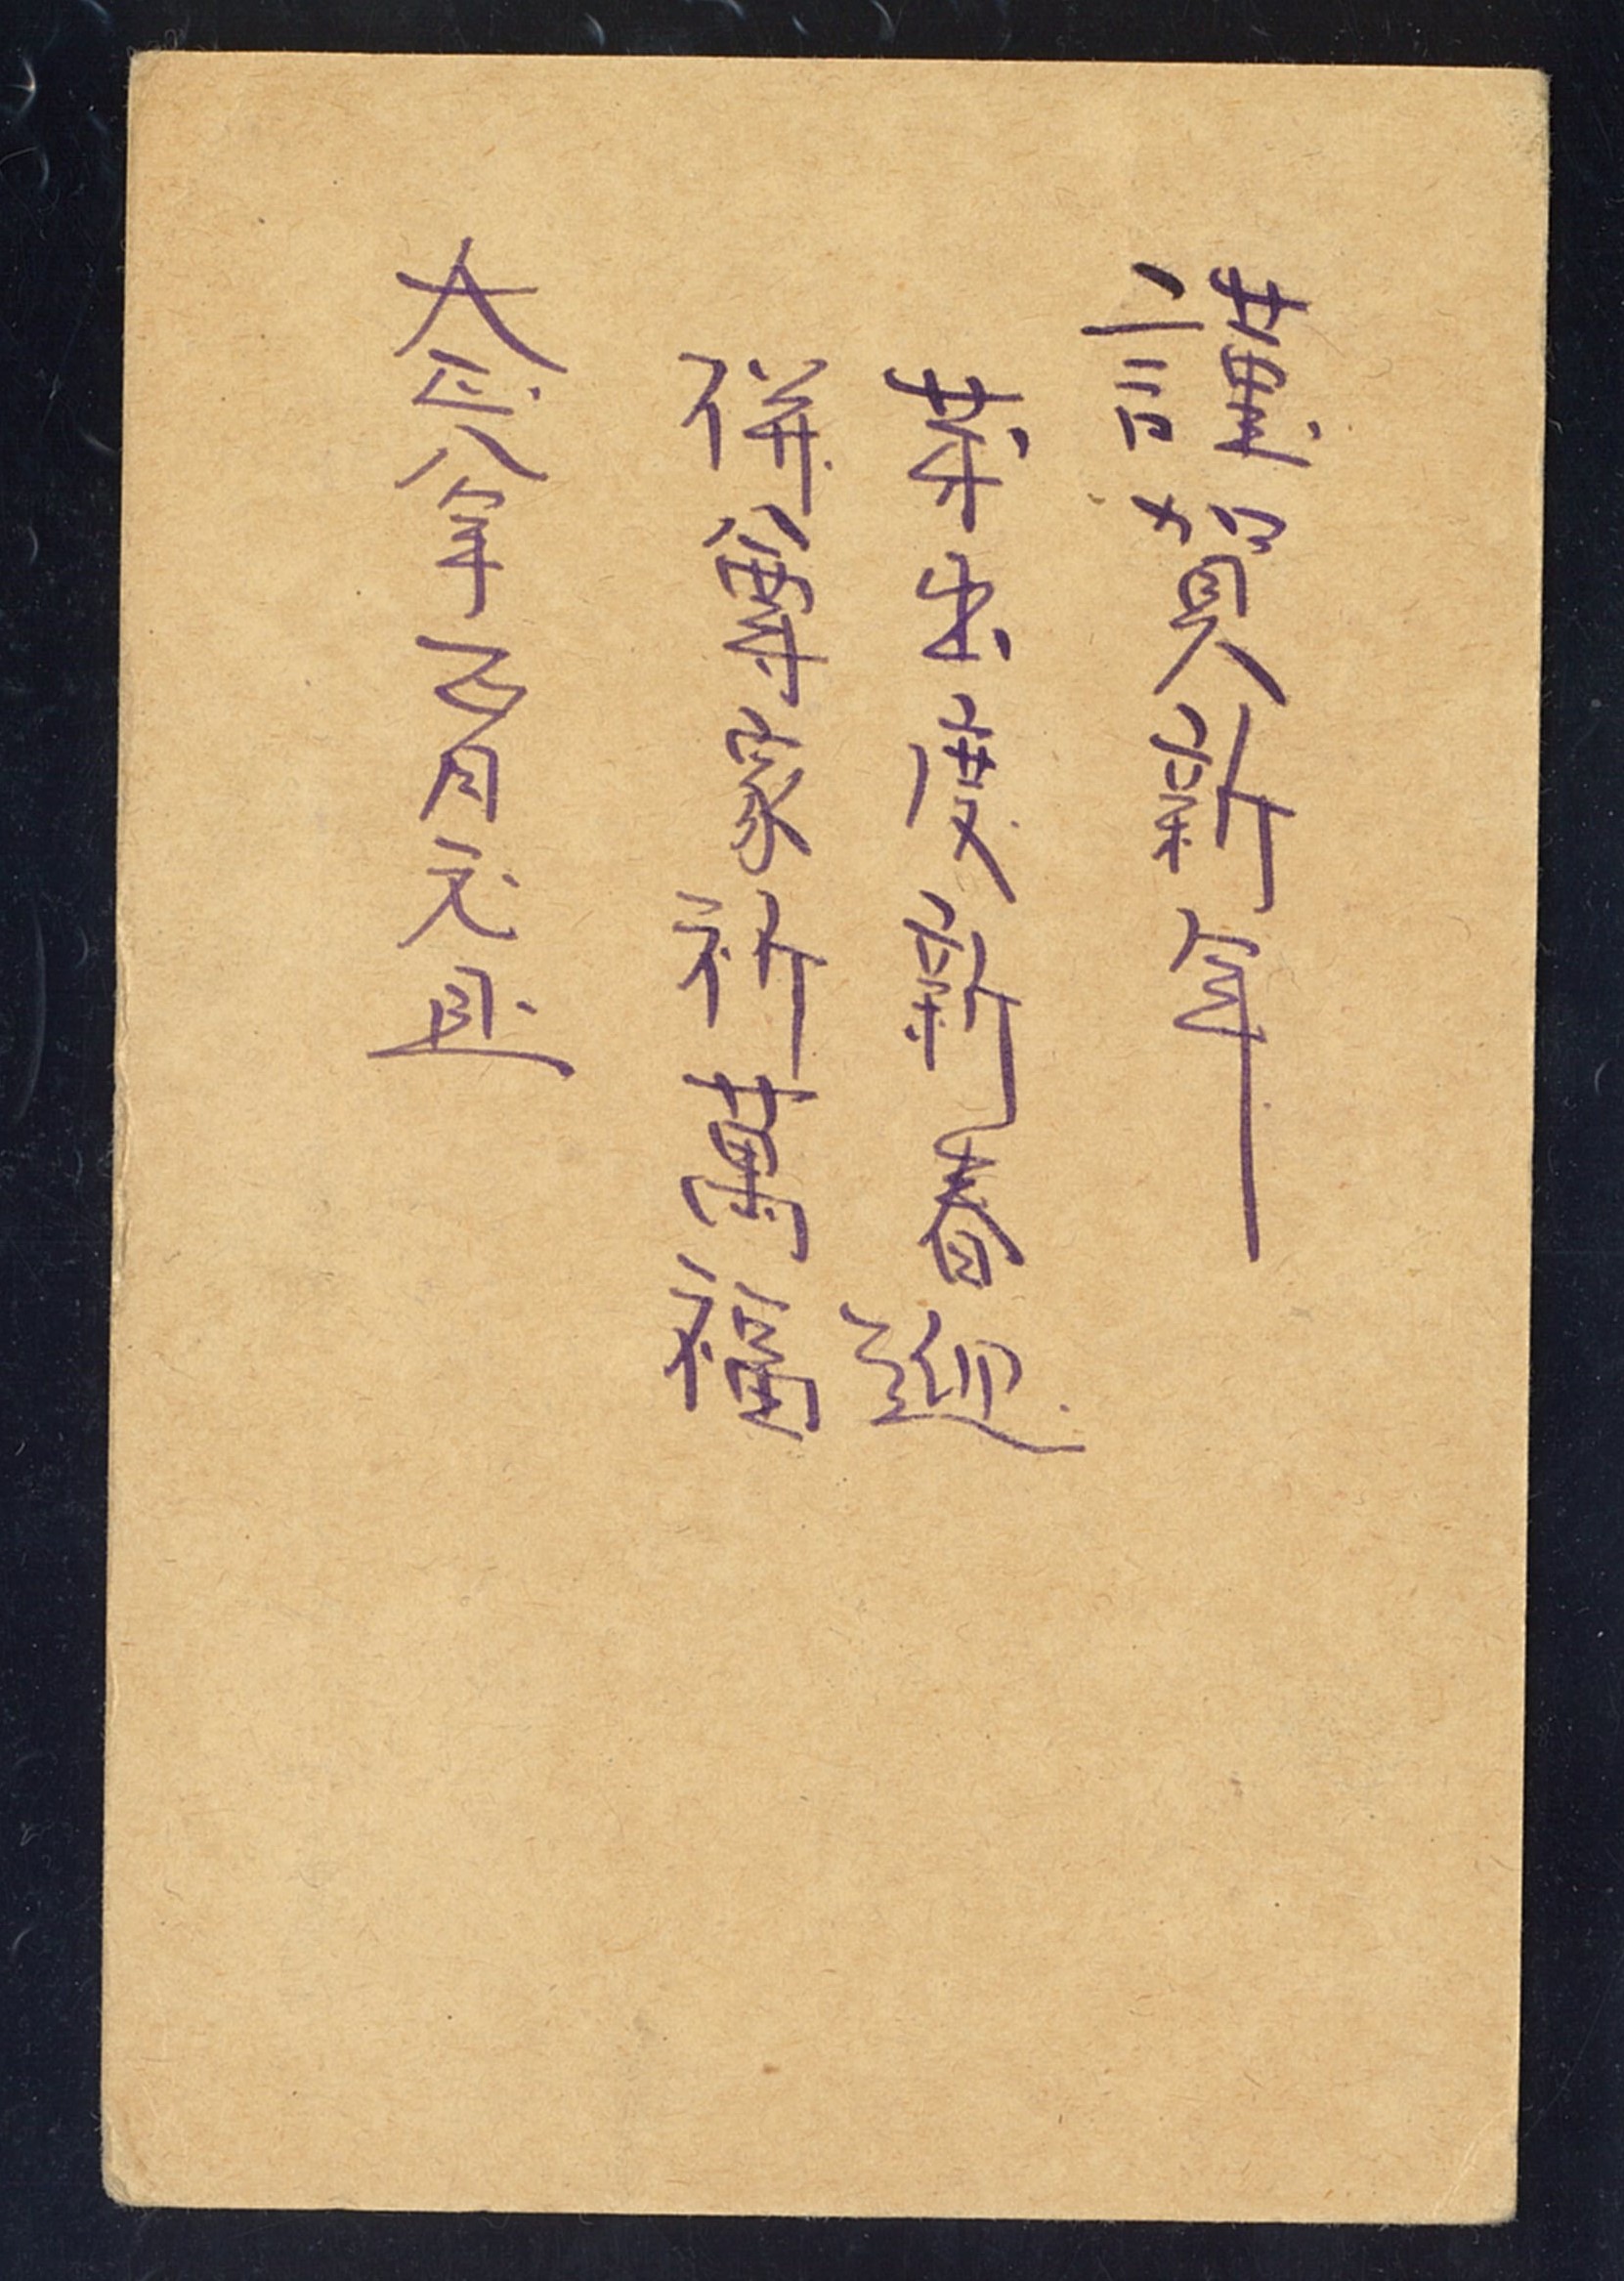 謹賀新年
芽出度新春迎
併尊家祈萬福
大正八年正月元旦